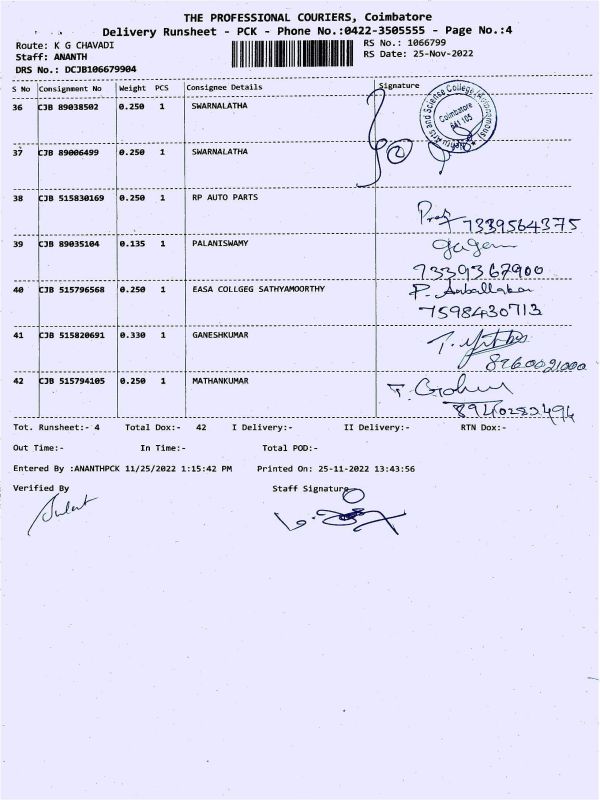 THE PROFESSIONAL COURIERS, Coimbatore
Delivery Runsheet - PCK - Phone No.:0422-3505555 - Page No.:4
Route: K G CHAVADI
RS No.: 1066799
Staff: ANANTH
RS Date: 25-Nov-2022
DRS No.: DCJB106679904
S No Consignment No Weight PCS Consignee Details Signature
36 CJB 89038502 0.250 1 SWARNALATHA
Arts and Science College (Autonomous)
Coimbatore
641 105
37 CJB 89006499 0.250 1 SWARNALATHA
2
38 CJB 515830169 0.250 1 RP AUTO PARTS
7339564375
39 CJB 89035104 0.135 1 PALANISWAMY gagan
7339367900
40 CJB 515796568 0.250 1 EASA COLLGEG SATHYAMOORTHY
7598430713
41 CJB 515820691 0.330 1 GANESHKUMAR
8760021000
42 CJB 515794105 0.250 1 MATHANKUMAR
Tot. Runsheet:- 4 Total Dox:- 42 I Delivery:- II Delivery:- RTN Dox:-
Out Time:- In Time:- Total POD:-
Entered By :ANANTHPCK 11/25/2022 1:15:42 PM Printed On: 25-11-2022 13:43:56
Verified By Staff Signature